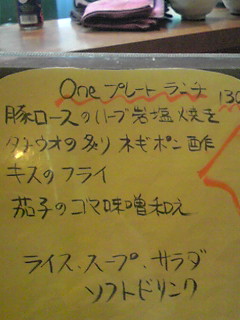 One プレート ランチ 130
豚ロースのハーブ岩塩焼き
タチウオの炙り ネギポン酢
キスのフライ
茄子のゴマ味噌和え
ライス、スープ、サラダ
ソフトドリンク